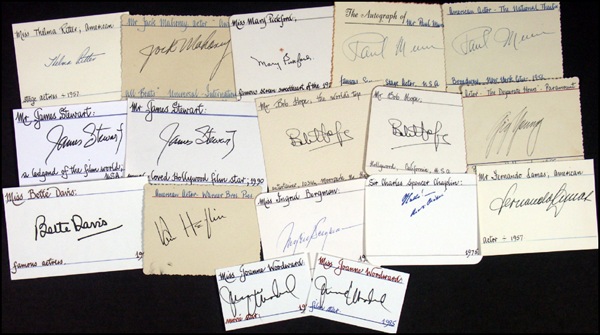 Miss Thelma Ritter, American
Thelma Ritter
stage actress - 1957
Mr Jack Mahoney, actor
Jock Mahoney
Universal International
Miss Mary Pickford:
Mary Pickford
famous screen sweetheart of the
The Autograph of
Mr Paul Muni
Paul Muni
famous
stage Actor, U.S.A
American Actor - The National Theatre
Paul Muni
Broadway, New York City
Mr James Stewart:
James Stewart
a legend of the film worlds,
U.S.A
Mr James Stewart:
James Stewart
loved Hollywood film star, 1990
Mr Bob Hope, the World's Top
Bob Hope
Mr Bob Hope,
Bob Hope
Hollywood, California, U.S.A
Actor - "The Desperate Hours" - Paramount
Gig Young
Miss Bette Davis:
Bette Davis
famous actress,
American Actor Warner Bros.
Van Heflin
Miss Ingrid Bergman:
Ingrid Bergman
Sir Charles Spencer Chaplin:
1975
Mr Fernando Lamas, American
Fernando Lamas
actor - 1957
Miss Joanne Woodward:
Joanne Woodward
movie star,
Miss Joanne Woodward:
Joanne Woodward
film star,
1985